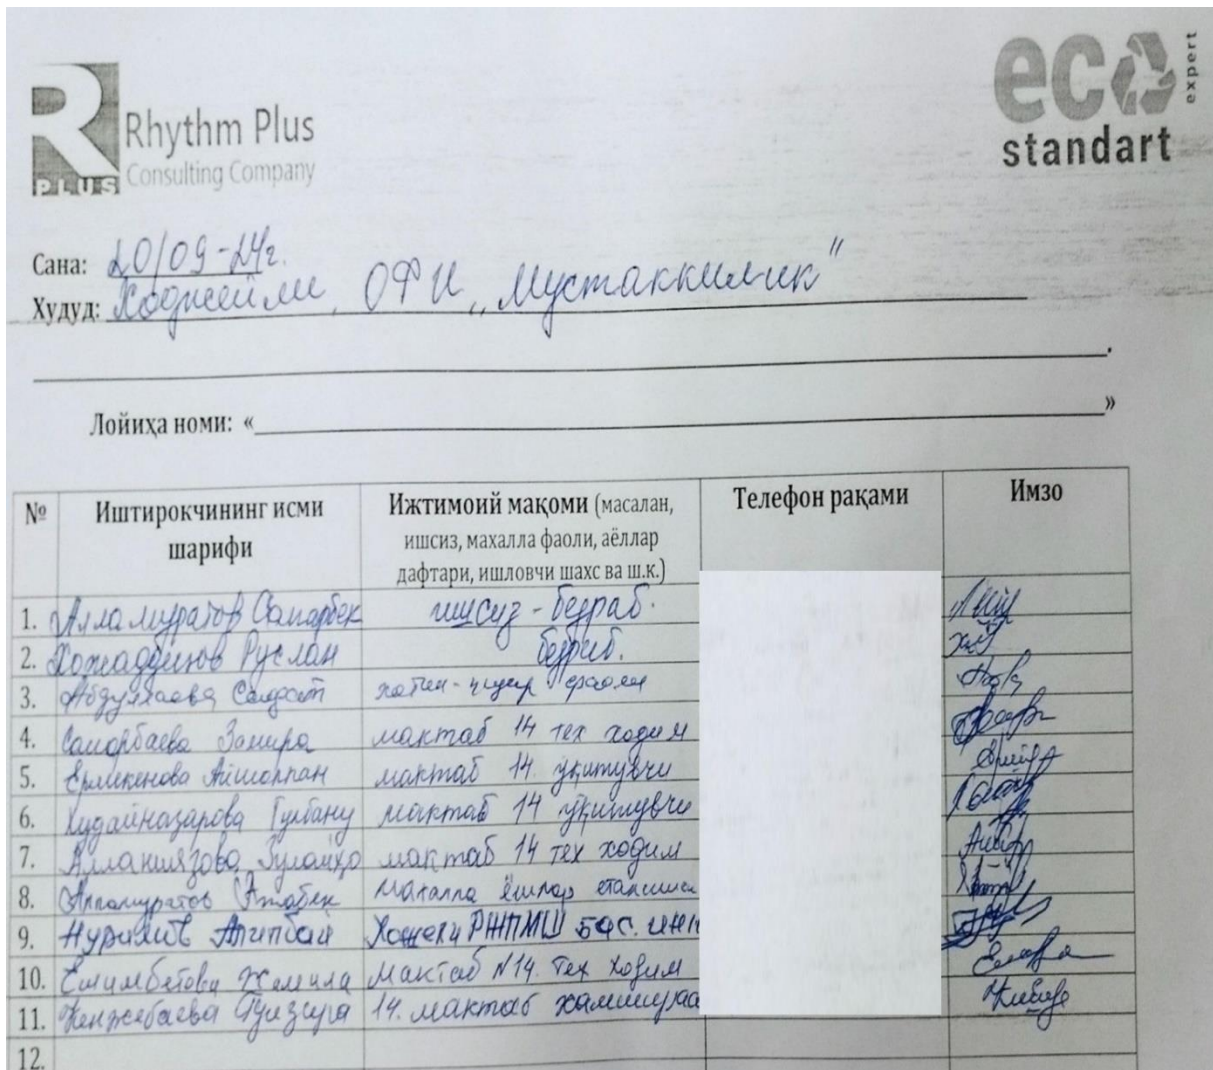 R
PLUS
Rhythm Plus
Consulting Company
eco
standart
expert
Сана: 20/09-24г.
Худуд: Ходжейли, ОФИ „Мустаккиллик"
.
Лойиҳа номи: « »
№ Иштирокчининг исми шарифи Ижтимоий мақоми (масалан, ишсиз, махалла фаоли, аёллар дафтари, ишловчи шахс ва ш.к.) Телефон рақами Имзо
1. Алламуратов Сапарбек ишсиз - безраб.
2. Хожаддинов Руслан безраб.
3. хотин-қизлар фаоли
4. Сапарбаева Замира мактаб 14 тех ходим
5. Ермекенова Айшолпан мактаб 14. ўқитувчи
6. Худайназарова Гулбану мактаб 14 ўқитувчи
7. Алланиязова мактаб 14 тех ходим
8. Алламуратов махалла ёшлар
9.
10. Елимбетова Жамила мактаб N14. тех ходим
11. Кенжебаева 14. мактаб хамшира
12.